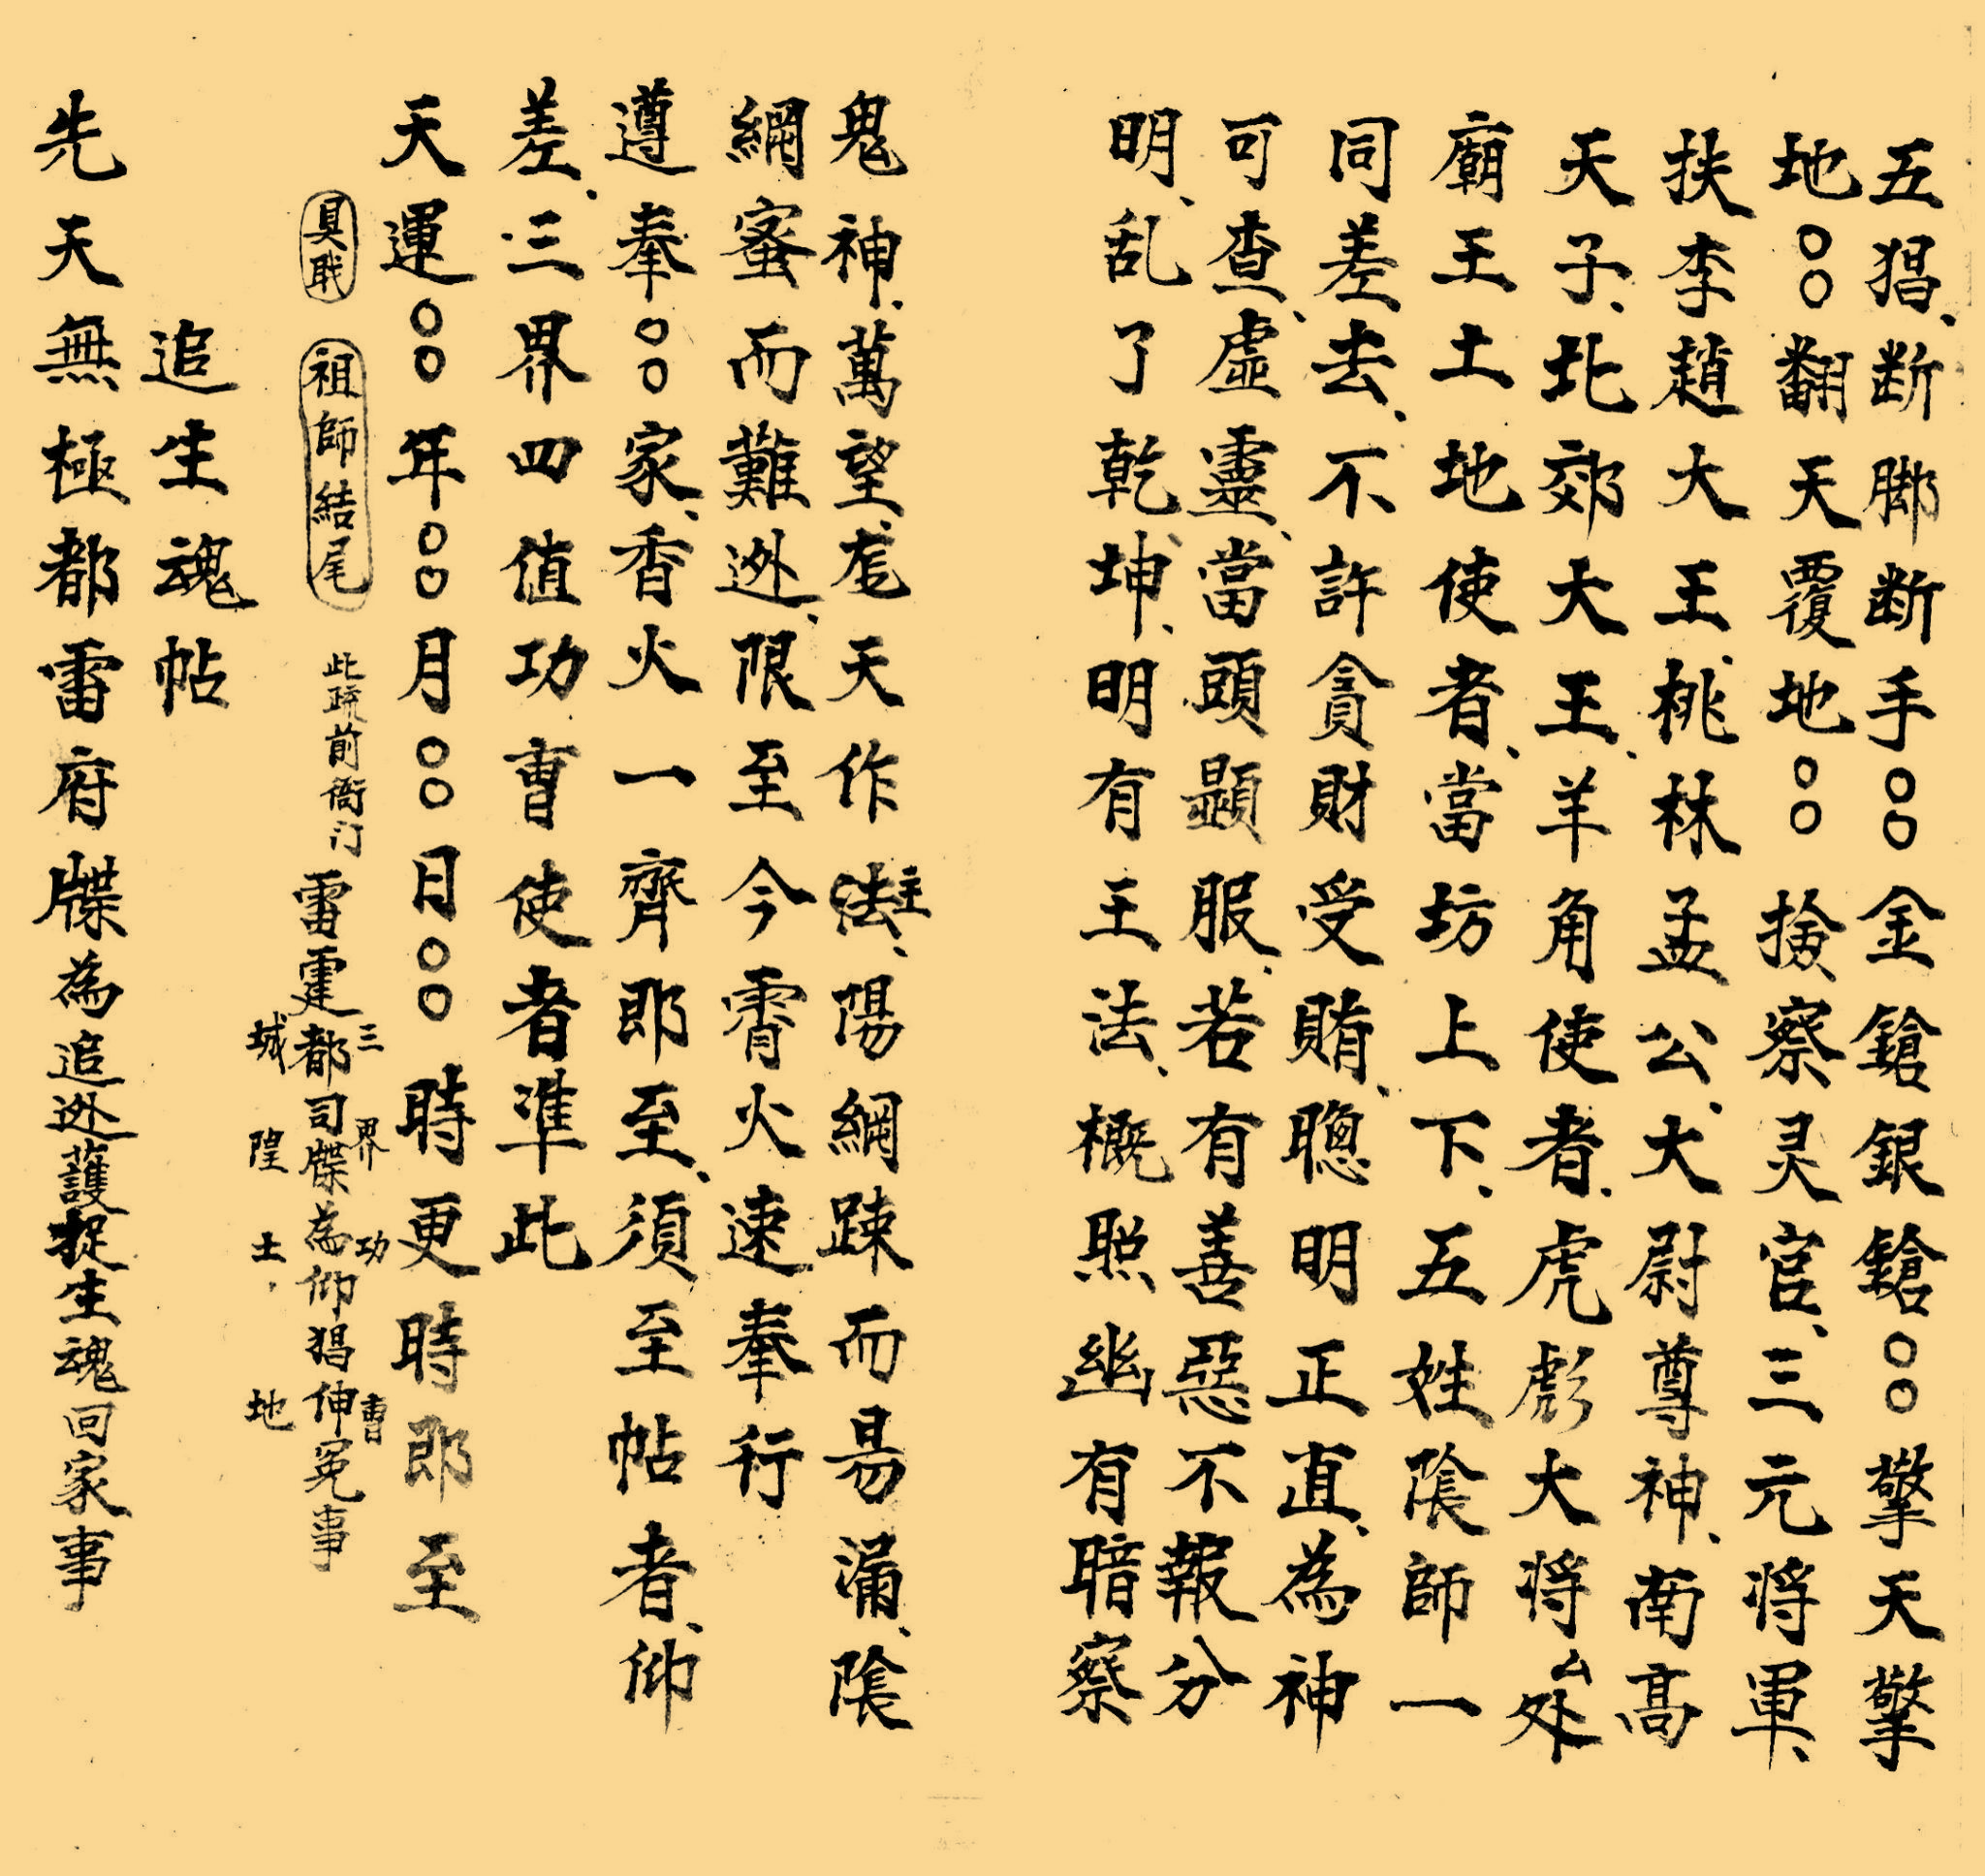 五猖、断脚断手〇〇金鎗銀鎗〇〇擎天擎
地〇〇翻天覆地〇〇撿察灵官、三元将軍、
扶李趙大王、桃林孟公、大尉尊神、南高
天子、北郊大王、羊角使者、虎彪大将、公处
廟王土地使者、當坊上下、五姓陰師一
同差去、不許貪財受賄、聰明正直、為神
可查、虛靈、當頭顕服、若有善惡不報分
明、乱了乾坤、明有王法、概照幽有暗察
鬼神、萬望老天作主法、陽綱踈而易漏、陰
綱蜜而難迯、限至今霄火速奉行
遵奉〇〇家、香火一齊即至、須至帖者、仰
差、三界四值功曹使者準此
天運〇〇年〇〇月〇〇日〇〇時更時即至
具職 祖師結尾 此疏前衙门 雷霆都司牒為仰猖伸冤事
三界功曹
城隍土地
追生魂帖
先天無極都雷府牒為追迯護捉生魂回家事